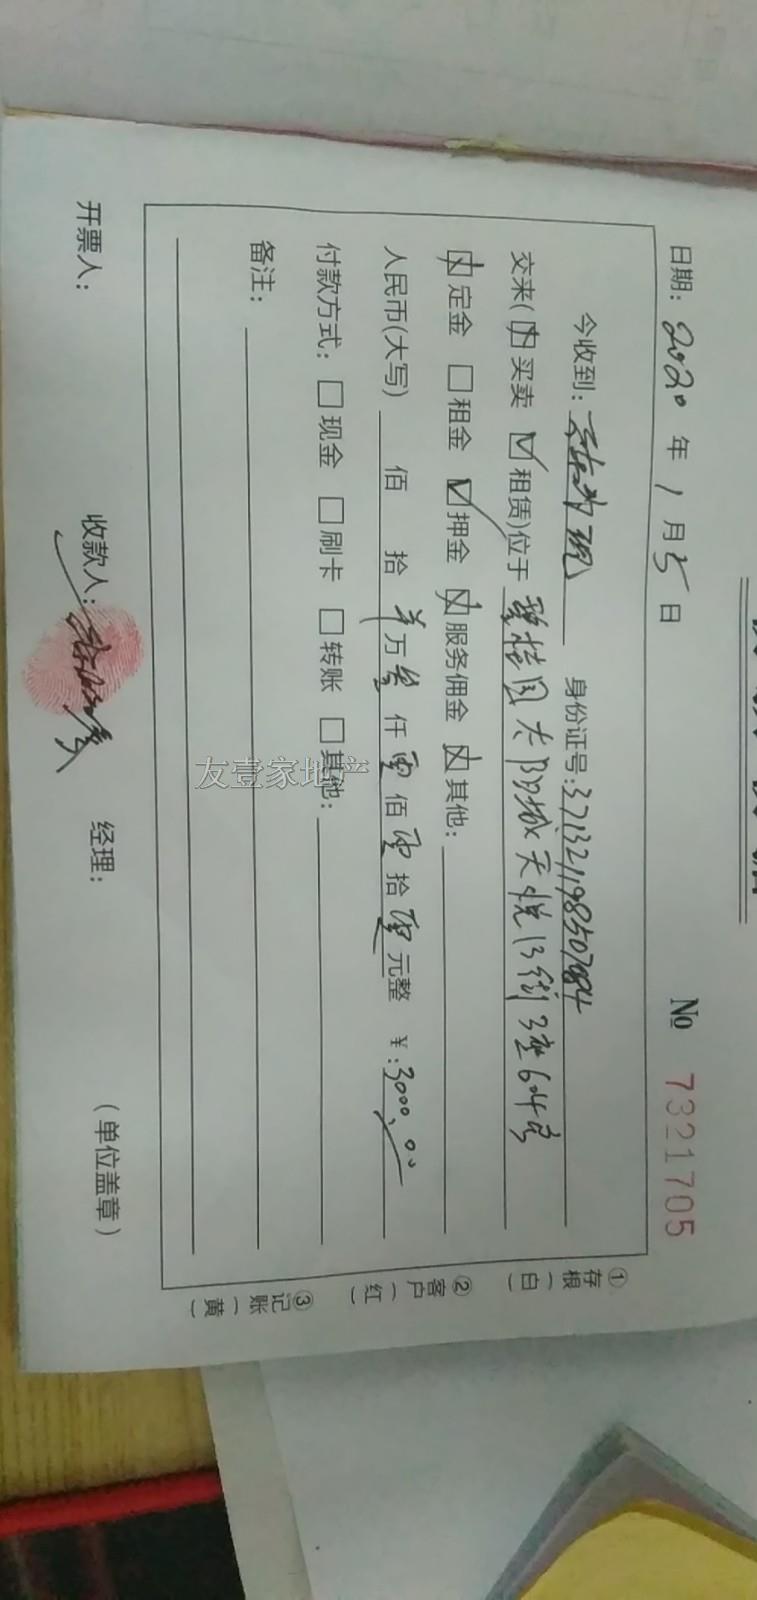 № 7321705
日期：2020 年 1 月 5 日
今收到： 身份证号：
交来(□买卖 ☑租赁)位于 碧桂园太阳城天悦13街3座604号
□定金 □租金 ☑押金 □服务佣金 □其他：
人民币(大写) 佰 拾 万 叁仟 零佰 零拾 零元整 ¥：3000.00
付款方式：□现金 □刷卡 □转账 □其他：
备注：
开票人： 收款人： 经理： (单位盖章)
①存根(白)
②客户(红)
③记账(黄)
友壹家地产